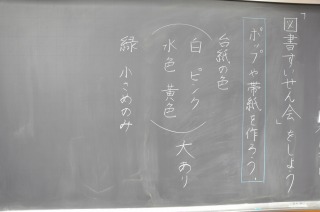 「図書すいせん会」をしよう
ポップや帯紙を作ろう。
台紙の色
白 ピンク
水色 黄色
大あり
緑 小さめのみ